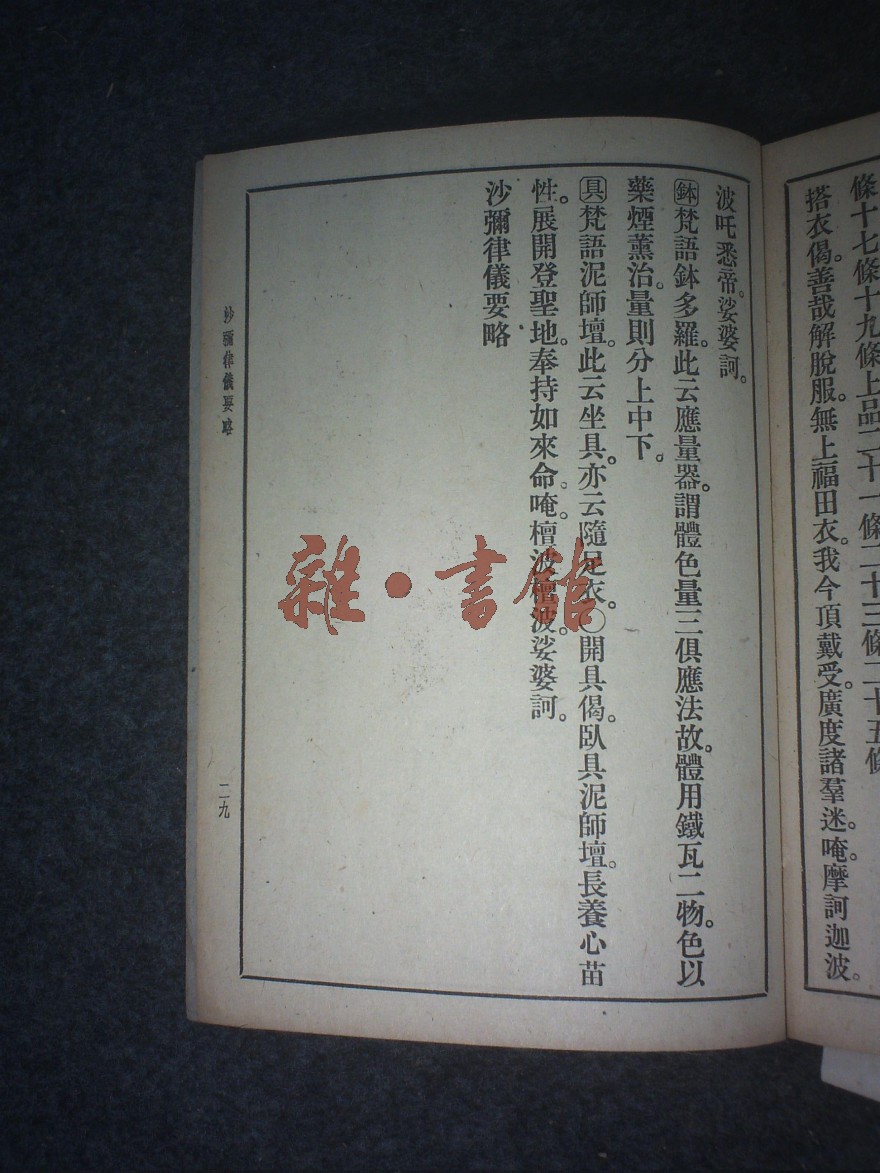 條十七條十九條上品二十一條二十三條二十五條
搭衣偈。善哉解脫服。無上福田衣。我今頂戴受。廣度諸羣迷。唵。摩訶迦波。
波吒悉帝。娑婆訶。
鉢梵語鉢多羅。此云應量器。謂體色量三俱應法故。體用鐵瓦二物。色以
藥煙薰治。量則分上中下。
具梵語泥師壇。此云坐具。亦云隨足衣。〇開具偈。臥具泥師壇。長養心苗
性。展開登聖地。奉持如來命。唵。檀波檀波。娑婆訶。
沙彌律儀要略
沙彌律儀要略
二九
雜·書館